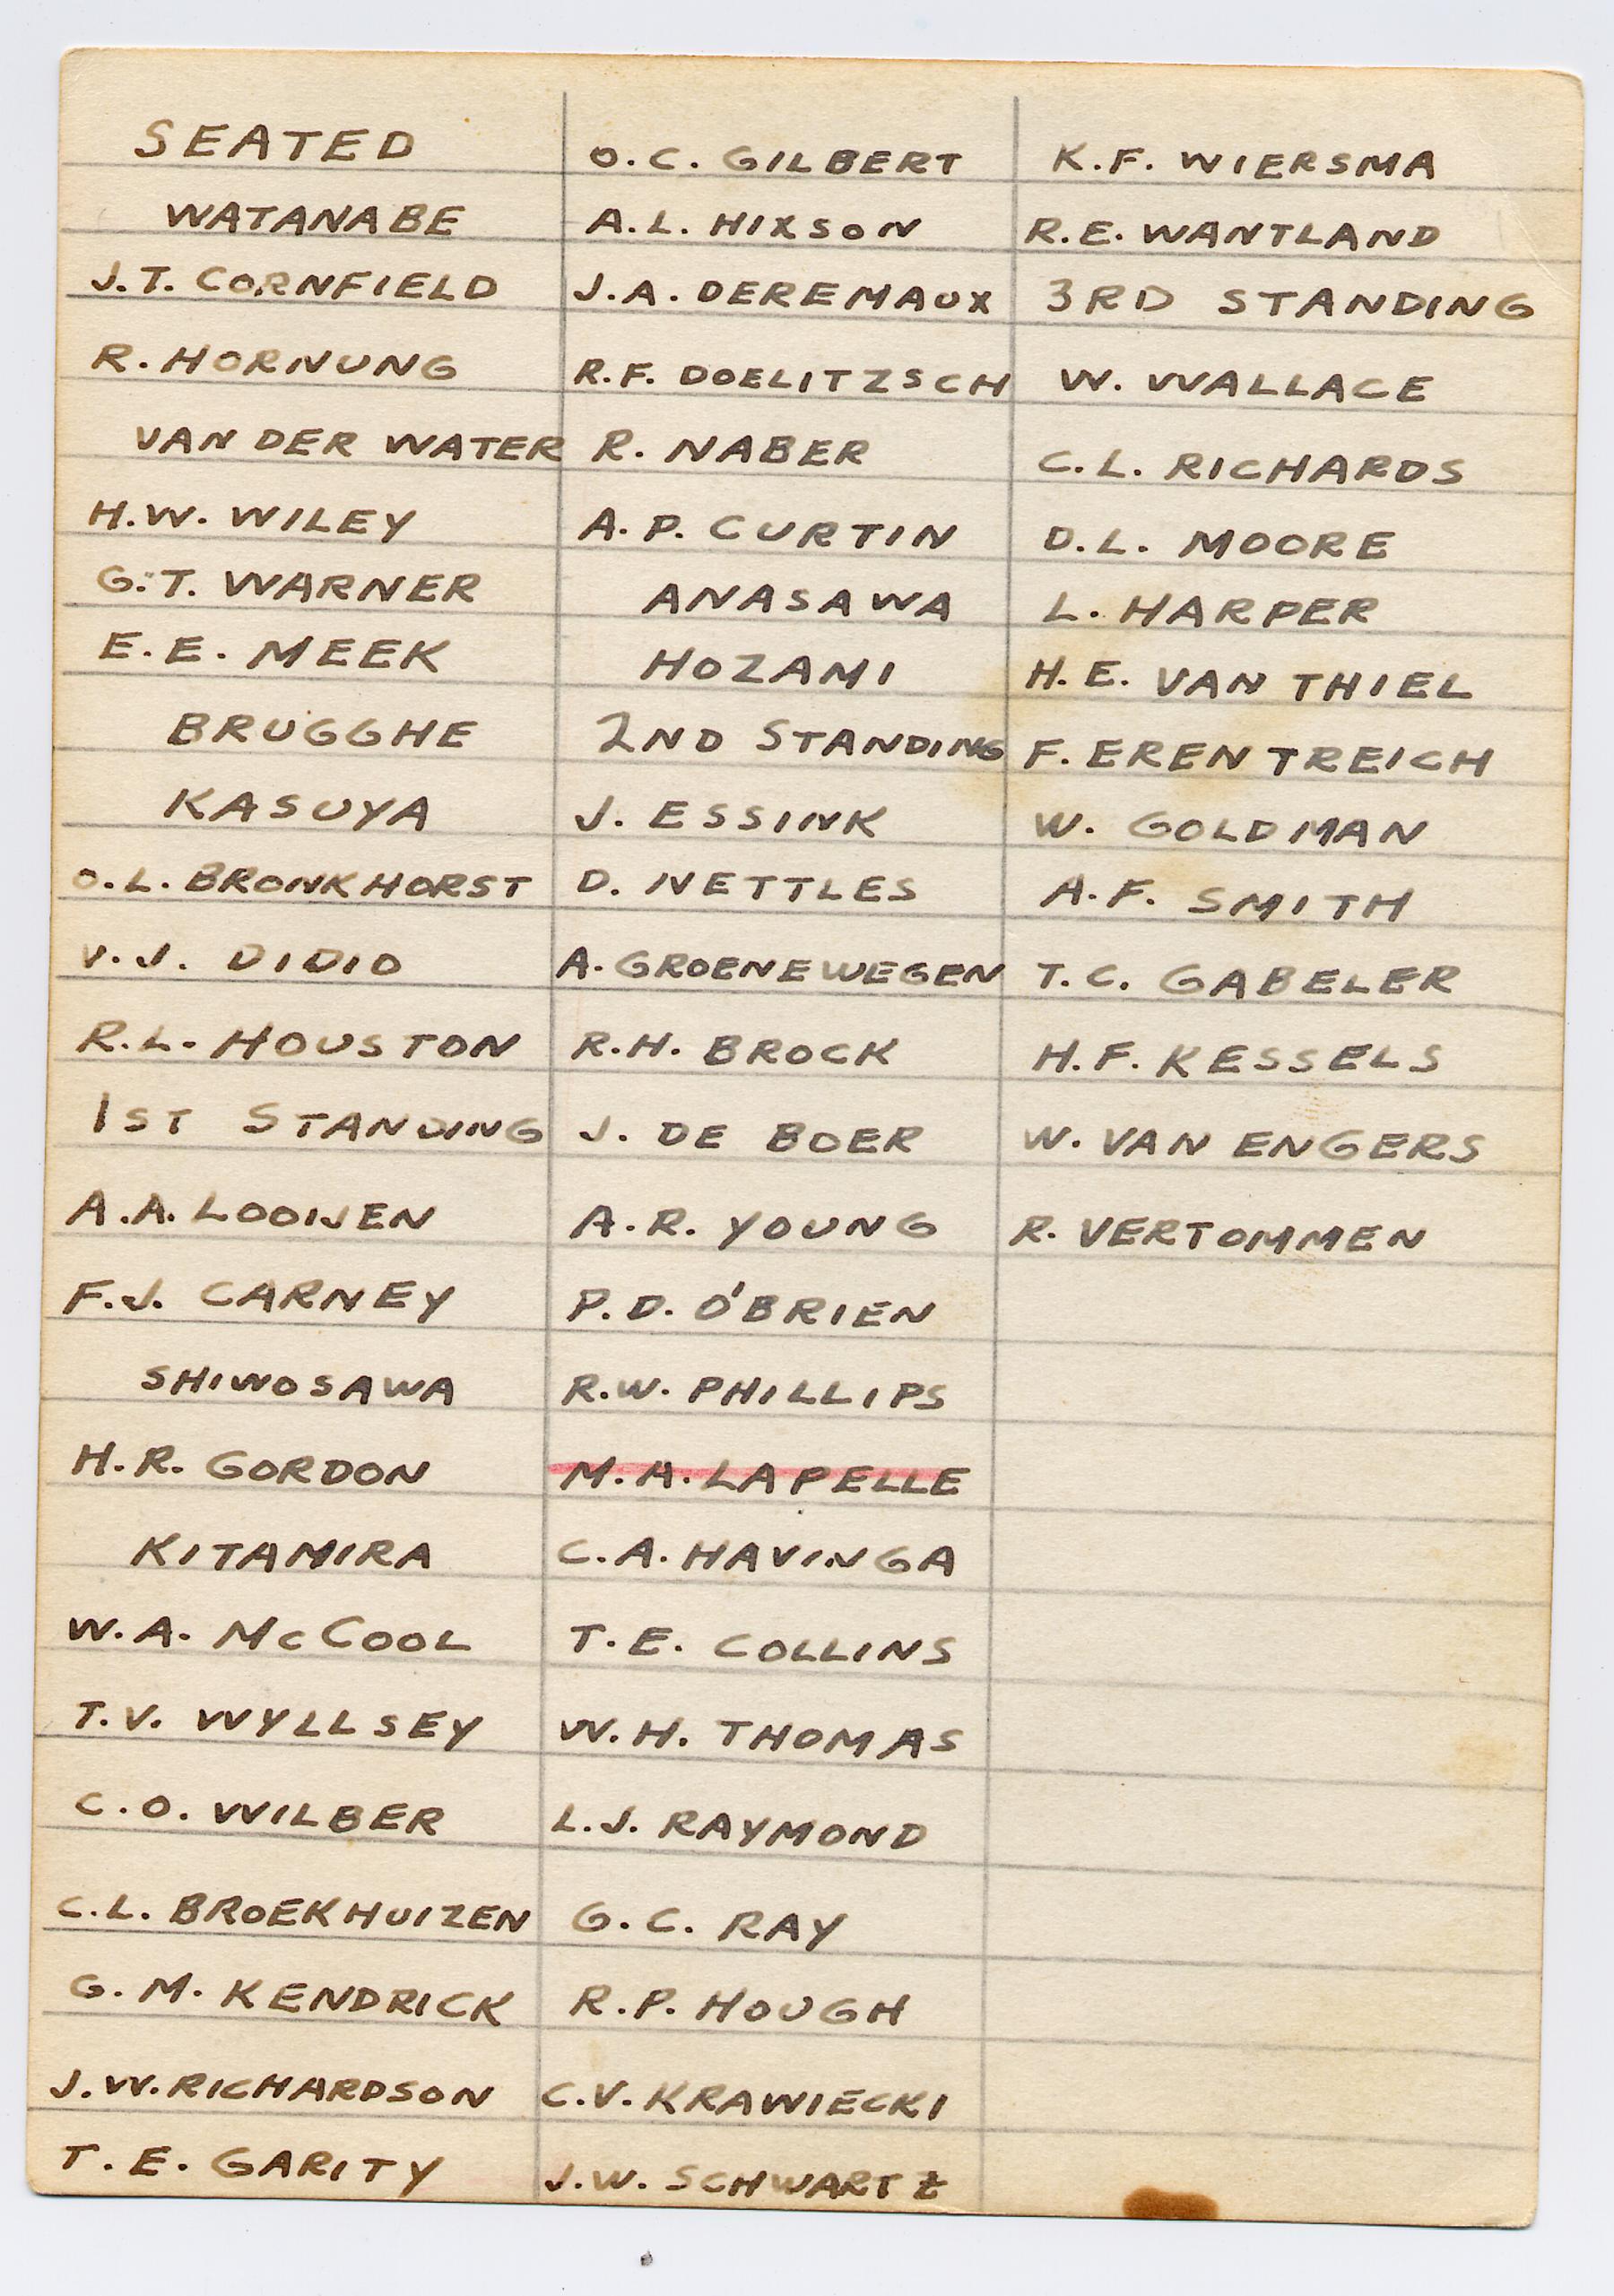 SEATED
WATANABE
J.T. CORNFIELD
R. HORNUNG
VAN DER WATER
H.W. WILEY
G.T. WARNER
E.E. MEEK
BRUGGHE
KASUYA
O.L. BRONKHORST
V.J. DIDIO
R.L. HOUSTON
1ST STANDING
A.A. LOOIJEN
F.J. CARNEY
SHIWOSAWA
H.R. GORDON
KITAMIRA
W.A. McCOOL
T.V. WYLLSEY
C.O. WILBER
C.L. BROEKHUIZEN
G.M. KENDRICK
J.W. RICHARDSON
T.E. GARITY
O.C. GILBERT
A.L. HIXSON
J.A. DEREMAUX
R.F. DOELITZSCH
R. NABER
A.P. CURTIN
ANASAWA
HOZAMI
2ND STANDING
J. ESSINK
D. NETTLES
A. GROENEWEGEN
R.H. BROCK
J. DE BOER
A.R. YOUNG
P.D. O'BRIEN
R.W. PHILLIPS
M.A. LAPELLE
C.A. HAVINGA
T.E. COLLINS
W.H. THOMAS
L.J. RAYMOND
G.C. RAY
R.P. HOUGH
C.V. KRAWIECKI
J.W. SCHWARTZ
K.F. WIERSMA
R.E. WANTLAND
3RD STANDING
W. WALLACE
C.L. RICHARDS
D.L. MOORE
L. HARPER
H.E. VAN THIEL
F. ERENTREICH
W. GOLDMAN
A.F. SMITH
T.C. GABELER
H.F. KESSELS
W. VAN ENGERS
R. VERTOMMEN